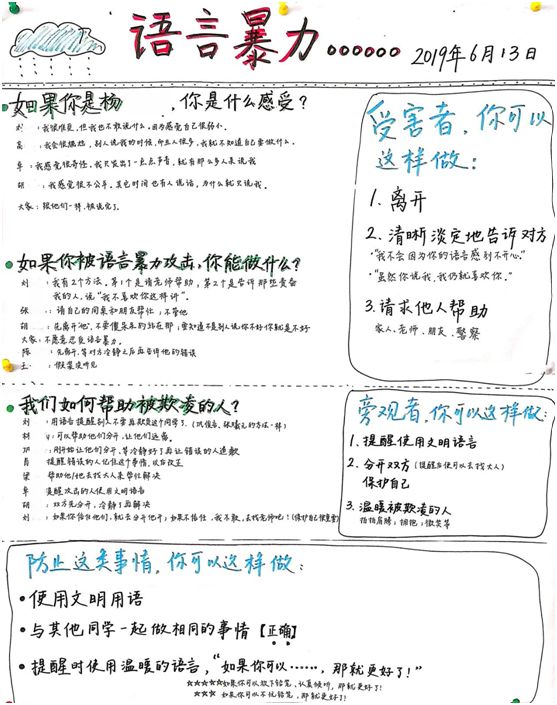 语言暴力……
2019年6月13日
如果你是杨　，你是什么感受？
刘：我很难受，但我也不敢说什么。因为感觉自己很弱小。
高：我会很尴尬，别人说我的时候，所以人很多，我就不知道自己要做什么。
卓：我感觉很奇怪，我只发出了一点点声音，就有那么多人来说我
胡：我感觉很不公平。其它时间也有人说话，为什么就只说我。
大家：跟他们一样，被说完了。
如果你被语言暴力攻击，你能做什么？
刘：我有2个方法。第1个是请老师帮助，第2个是告诉那些责备
我的人，说“我不喜欢你这样讲”。
张：请自己的同桌和朋友帮忙；不管他
胡：先离开他，不要傻呆呆的站在那；要知道不是别人说你不好你就是不好
大家：不愿意忍受语言暴力。
陈：先离开，等对方冷静之后再告诉他的错误
王：假装没听见
受害者，你可以
这样做：
1. 离开
2. 清晰淡定地告诉对方
“我不会因为你的语言感到不开心。”
“虽然你说我，我仍就喜欢你。”
3. 请求他人帮助
家人、老师、朋友、警察
我们如何帮助被欺凌的人？
刘：用语言提醒别人不要再欺负这个同学了。
林：可以帮助他们分开，让他们远离。
巩：刚开始让他们分开，等冷静好了再让错误的人道歉
肖：提醒错误的人记住这个事情，以后改正
梁：帮助他/她去找大人来帮忙解决
卓：提醒攻击的人使用文明语言
胡：双方先分开，冷静了再解决
刘：如果你信任他们，就去分开他们；如果不信任，我不敢，去找老师吧！（保护自己很重要）
旁观者，你可以这样做：
1. 提醒使用文明语言
2. 分开双方（提醒后便可以去找大人）
保护自己
3. 温暖被欺凌的人
拍拍肩膀；拥抱；微笑等
防止这类事情，你可以这样做：
• 使用文明用语
• 与其他同学一起做相同的事情【正确】
• 提醒时使用温暖的语言，“如果你可以……，那就更好了！”
☆☆☆☆☆如果你可以放下铅笔、认真倾听，那就更好了！
☆☆☆ 如果你可以不玩铅笔，那就更好了！